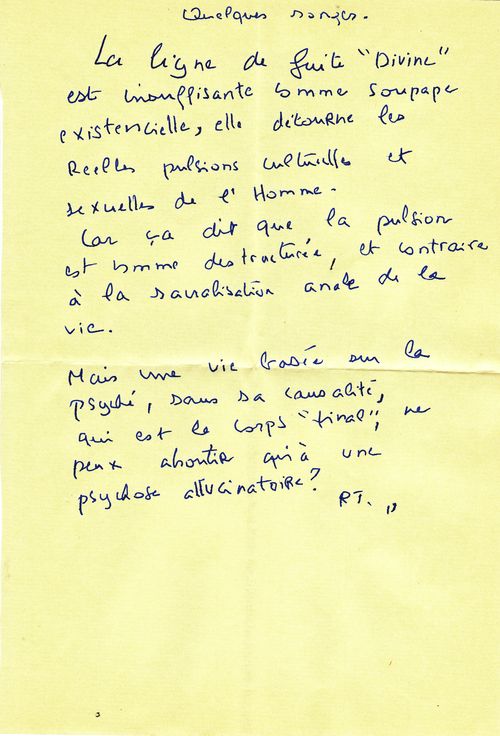 Quelques songes.
La ligne de fuite "Divine"
est insouffisante comme soupape
existencielle, elle détourne les
Réelles pulsions culturelles et
sexuelles de l'Homme.
Car ça dit que la pulsion
est comme destructurée, et contraire
à la sacralisation anale de la
vie.
Mais une vie basée sur la
psyché, sans sa causalité,
qui est le corps "final", ne
peux aboutir qu'à une
psychose allucinatoire?
RT.